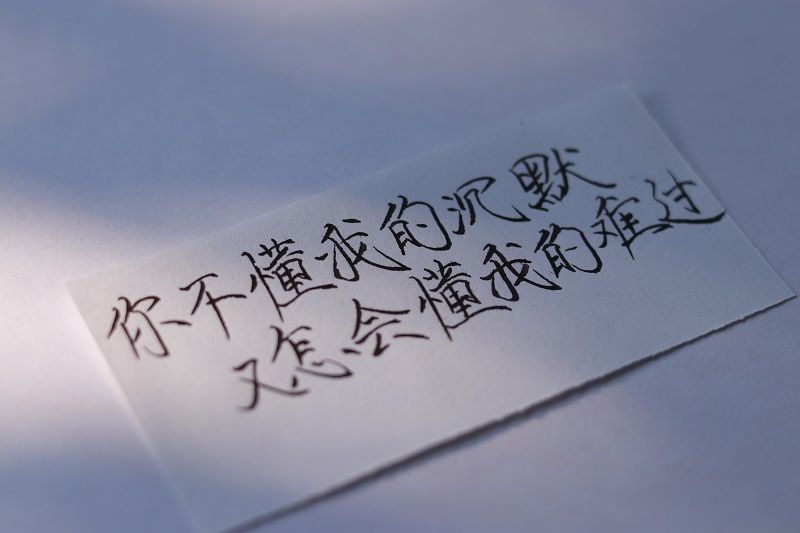 你不懂我的沉默
又怎会懂我的难过